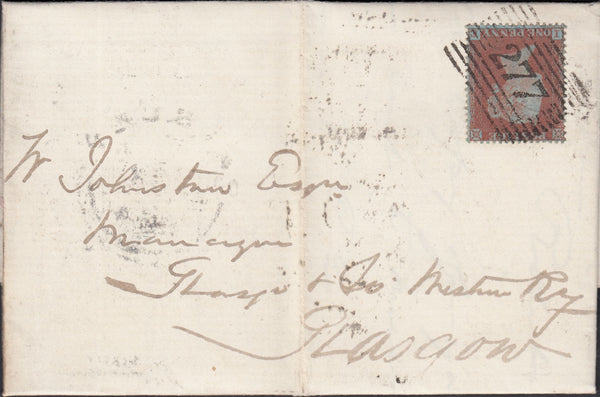 ONE PENNY
277
W Johnstone Esqr
Manager
Glasgo & So Western Ry
Glasgow